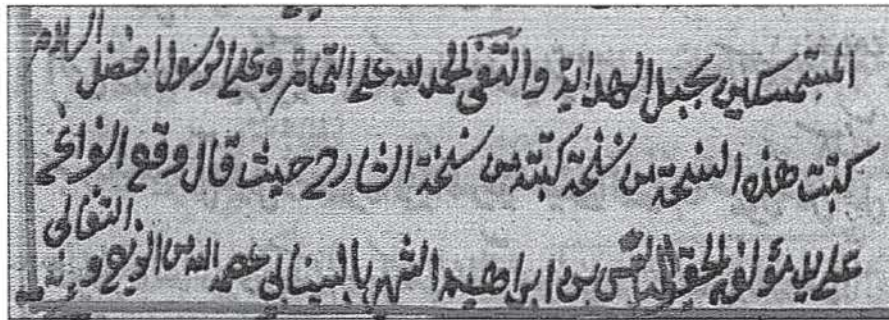 المستمسكين بحبل الهداية والتقى الحمد لله على التمام وعلى الرسول افضل السلام
كتبت هذه النسخة من نسخة كتبته من نسخة الشارح حيث قال وقع الفراغ
على يد مؤلفه الحقير ابراهيم الشهير بالسينابى عصمه الله من الزيغ و